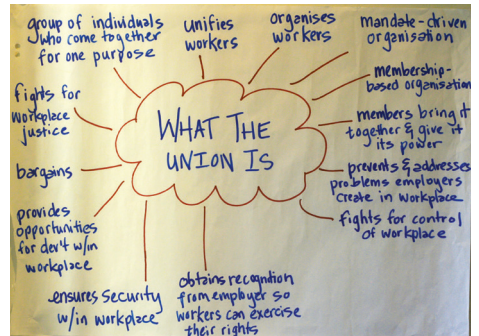 group of individuals
who come together
for one purpose
unifies
workers
organises
workers
mandate-driven
organisation
membership-
based organisation
members bring it
together & give it
its power
prevents & addresses
problems employers
create in workplace
fights for control
of workplace
obtains recognition
from employer so
workers can exercise
their rights
ensures security
w/in workplace
provides
opportunities
for dev't w/in
workplace
bargains
fights for
workplace
justice
WHAT THE
UNION IS